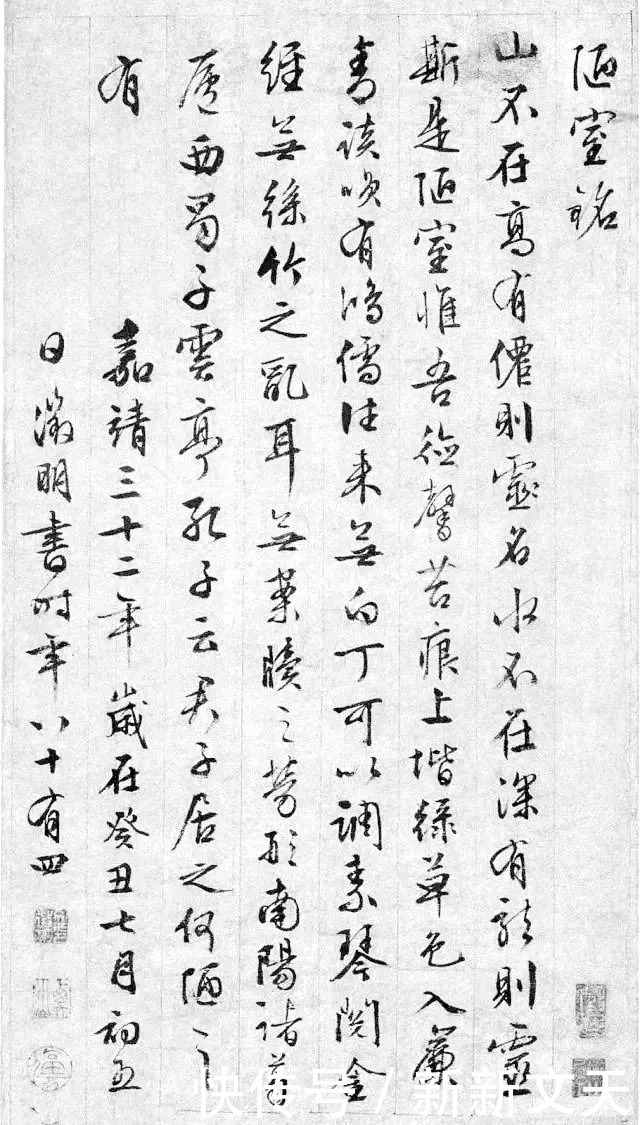 陋室銘
山不在高有僊則靈名水不在深有龍則靈
斯是陋室惟吾德馨苔痕上堦綠草色入簾
青談咲有鴻儒往來無白丁可以調素琴閱金
經無絲竹之亂耳無案牘之勞形南陽諸葛
廬西蜀子雲亭孔子云君子居之何陋之
有
嘉靖三十二年歲在癸丑七月初五
日徵明書時年八十有四
快传号 / 新新文天